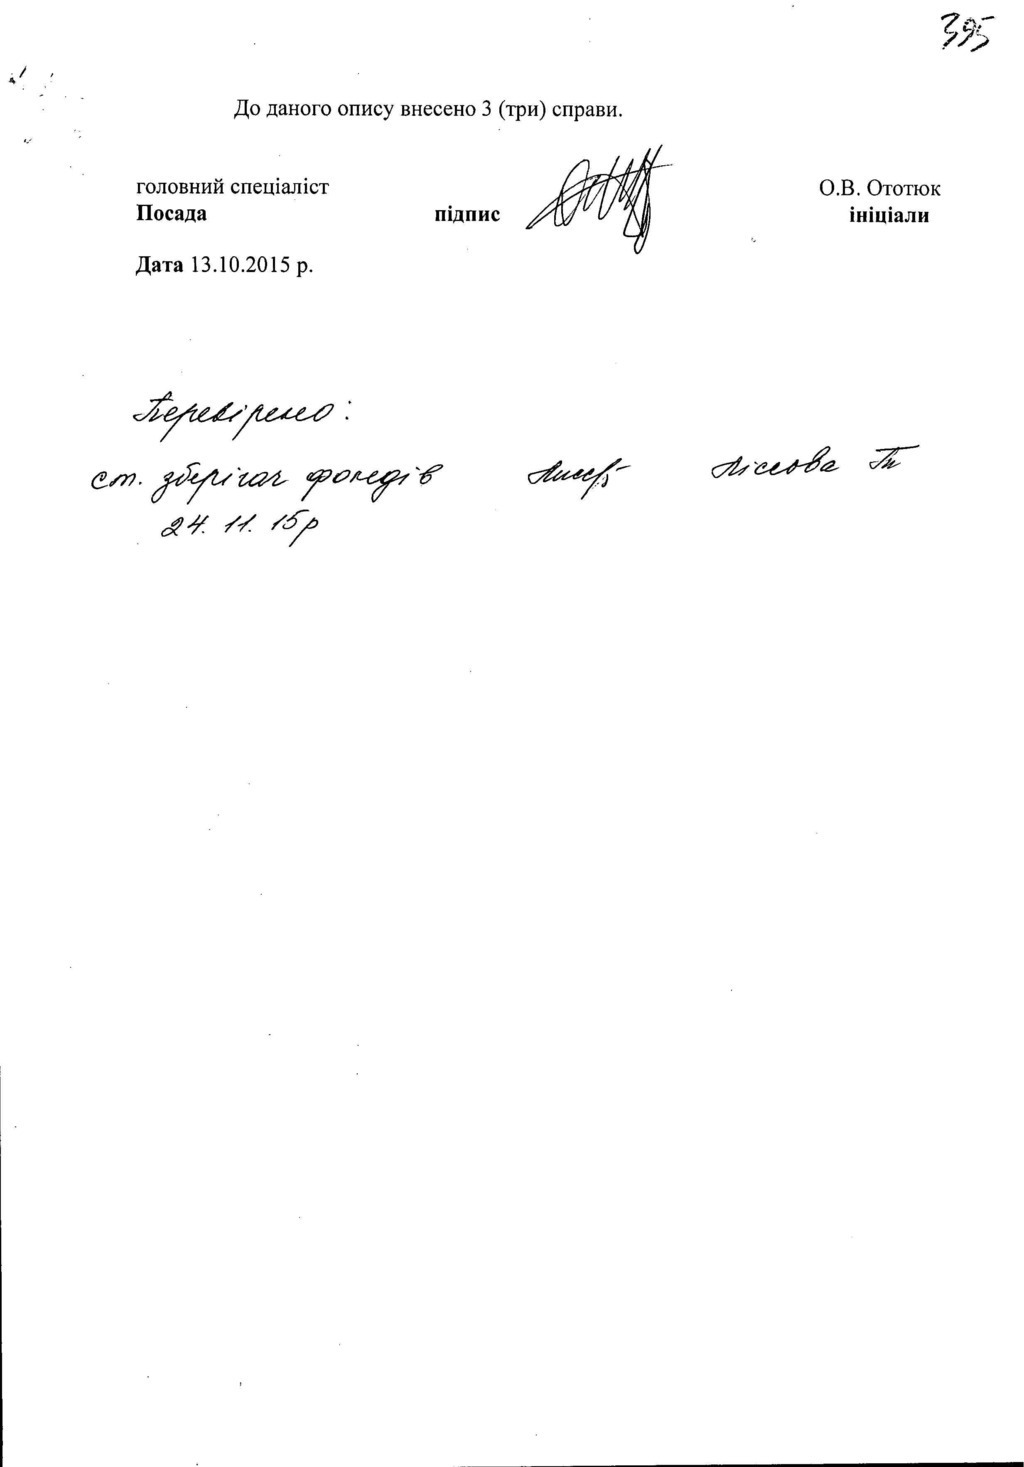 395
До даного опису внесено 3 (три) справи.
головний спеціаліст О.В. Ототюк
Посада підпис ініціали
Дата 13.10.2015 р.
Перевірено:
ст. зберігач фондів
24. 11. 15р